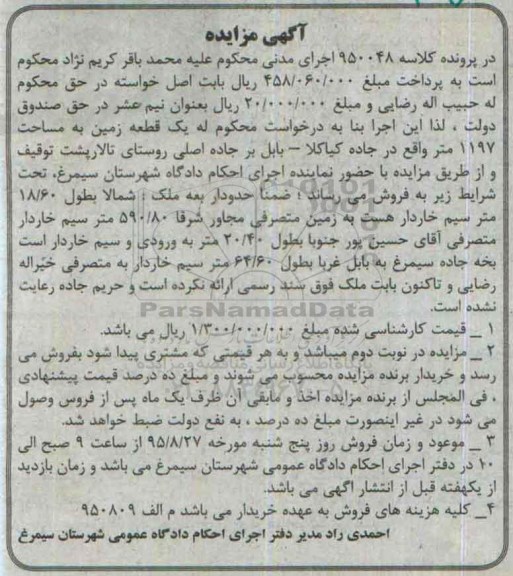 آگهی مزایده
در پرونده کلاسه ۹۵۰۰۴۸ اجرای مدنی محکوم علیه محمد باقر کریم نژاد محکوم
است به پرداخت مبلغ ۴۵۸/۰۶۰/۰۰۰ ریال بابت اصل خواسته در حق محکوم
له حبیب اله رضایی و مبلغ ۲۰/۰۰۰/۰۰۰ ریال بعنوان نیم عشر در حق صندوق
دولت ، لذا این اجرا بنا به درخواست محکوم له یک قطعه زمین به مساحت
۱۱۹۷ متر واقع در جاده کیاکلا – بابل بر جاده اصلی روستای تالارپشت توقیف
و از طریق مزایده با حضور نماینده اجرای احکام دادگاه شهرستان سیمرغ، تحت
شرایط زیر به فروش می رساند ؛ ضمنا حدودار بعه ملک : شمالا بطول ۱۸/۶۰
متر سیم خاردار هست به زمین متصرفی مجاور شرقا ۵۹۰/۸۰ متر سیم خاردار
متصرفی آقای حسین پور جنوبا بطول ۲۰/۴۰ متر به ورودی و سیم خاردار است
بخه جاده سیمرغ به بابل غربا بطول ۶۴/۶۰ متر سیم خاردار به متصرفی خیراله
رضایی و تاکنون بابت ملک فوق سند رسمی ارائه نکرده است و حریم جاده رعایت
نشده است.
۱ _ قیمت کارشناسی شده مبلغ ۱/۳۰۰/۰۰۰/۰۰۰ ریال می باشد.
۲ _ مزایده در نوبت دوم میباشد و به هر قیمتی که مشتری پیدا شود بفروش می
رسد و خریدار برنده مزایده محسوب می شوند و مبلغ ده درصد قیمت پیشنهادی
، فی المجلس از برنده مزایده اخذ و مابقی آن ظرف یک ماه پس از فروس وصول
می شود در غیر اینصورت مبلغ ده درصد ، به نفع دولت ضبط خواهد شد.
۳ _ موعود و زمان فروش روز پنج شنبه مورخه ۹۵/۸/۲۷ از ساعت ۹ صبح الی
۱۰ در دفتر اجرای احکام دادگاه عمومی شهرستان سیمرغ می باشد و زمان بازدید
از یکهفته قبل از انتشار آگهی می باشد.
۴_ کلیه هزینه های فروش به عهده خریدار می باشد م الف ۹۵۰۸۰۹
احمدی راد مدیر دفتر اجرای احکام دادگاه عمومی شهرستان سیمرغ
ParsNamadData